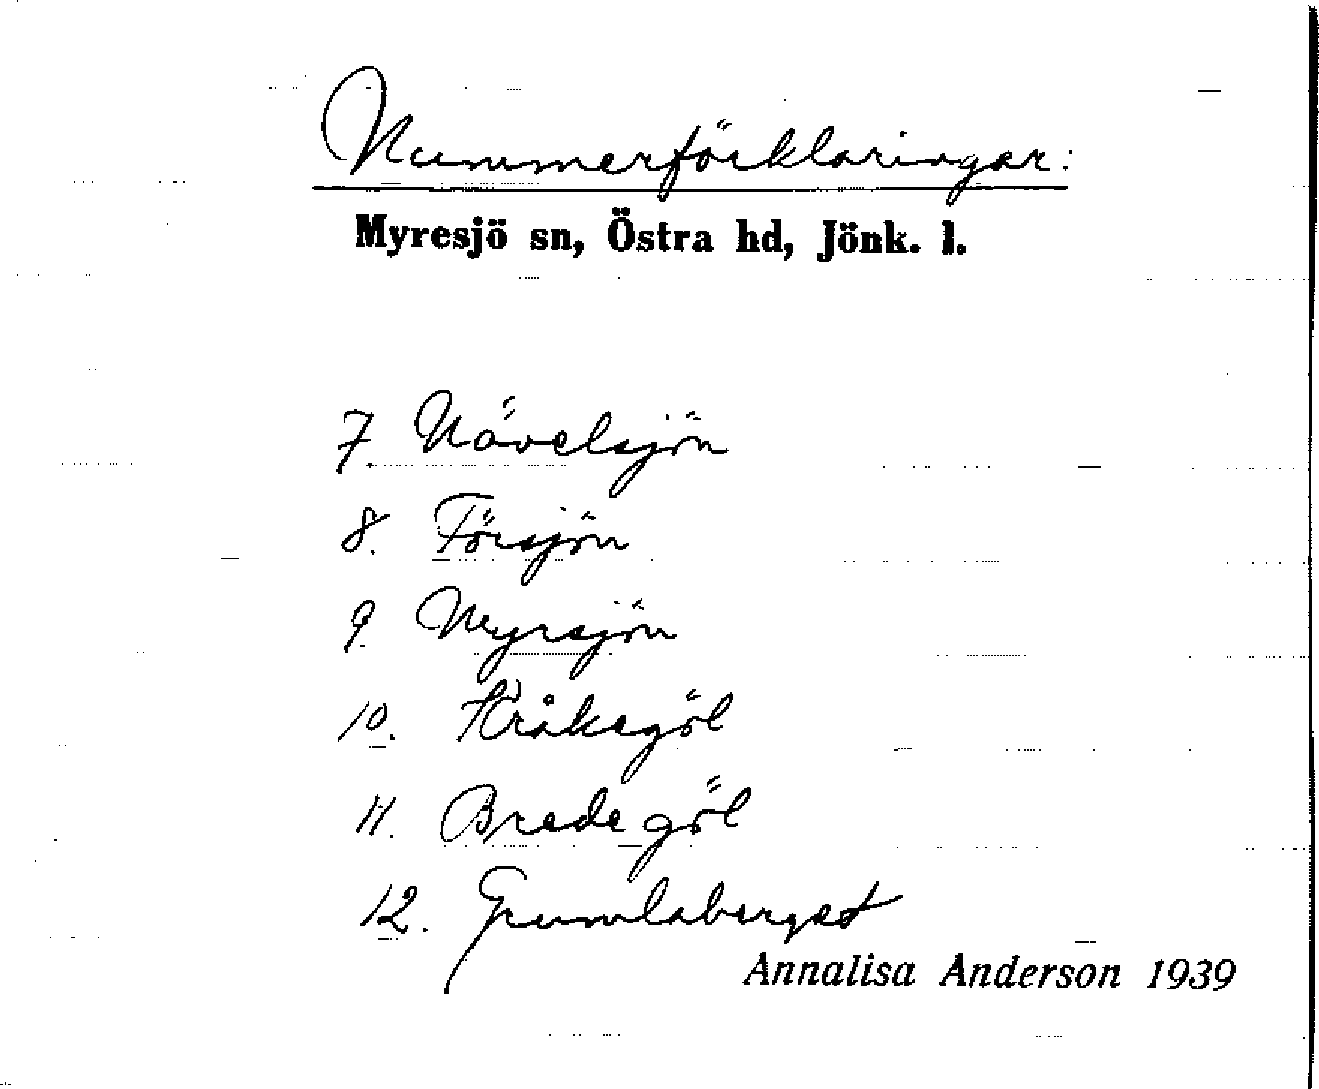 Nummerförklaringar:
Myresjö sn, Östra hd, Jönk. l.
7. Növelsjön
8. Försjön
9. Myrsjön
10. Kråkegöl
11. Brede göl
12. Grumlaberget
Annalisa Anderson 1939